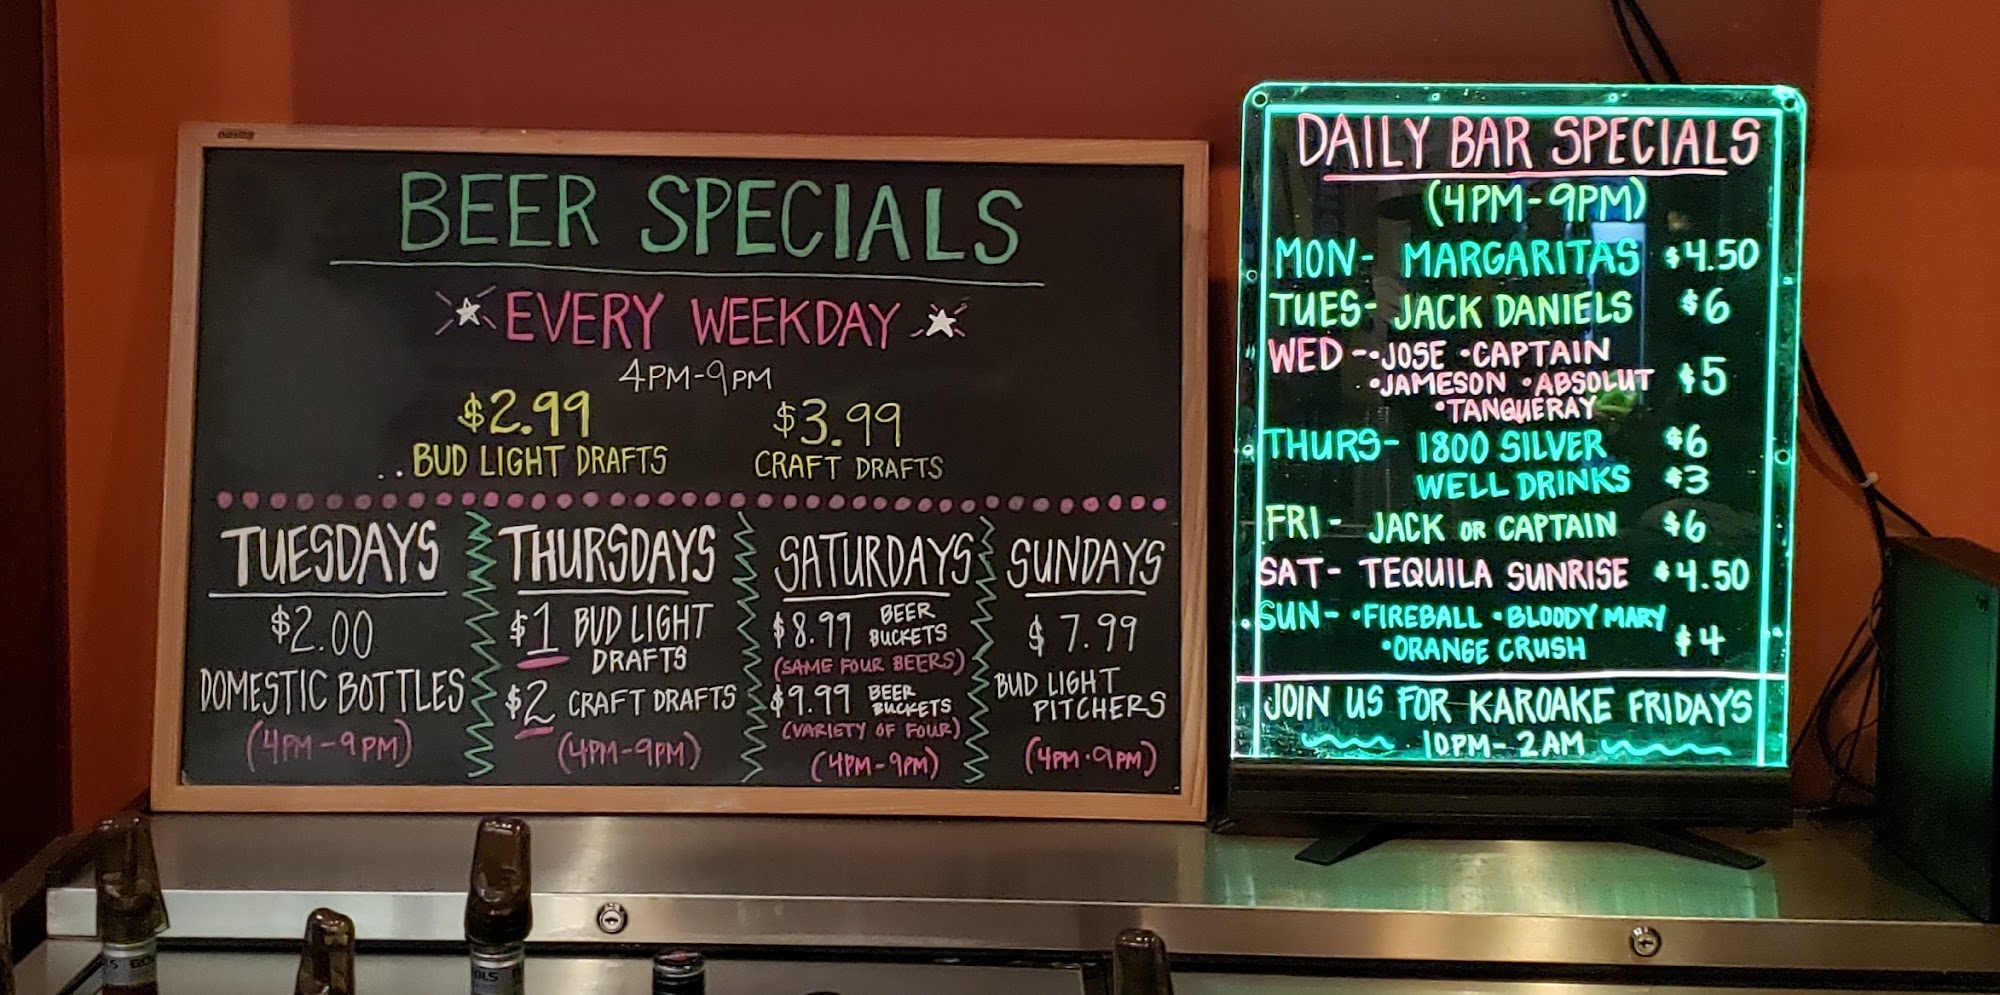 BEER SPECIALS
EVERY WEEKDAY
4PM-9PM
$2.99
BUD LIGHT DRAFTS
$3.99
CRAFT DRAFTS
TUESDAYS
$2.00
DOMESTIC BOTTLES
(4PM-9PM)
THURSDAYS
$1 BUD LIGHT
DRAFTS
$2 CRAFT DRAFTS
(4PM-9PM)
SATURDAYS
$8.99 BEER
BUCKETS
(SAME FOUR BEERS)
$9.99 BEER
BUCKETS
(VARIETY OF FOUR)
(4PM-9PM)
SUNDAYS
$7.99
BUD LIGHT
PITCHERS
(4PM-9PM)
DAILY BAR SPECIALS
(4PM-9PM)
MON- MARGARITAS $4.50
TUES- JACK DANIELS $6
WED -•JOSE •CAPTAIN
•JAMESON •ABSOLUT $5
•TANQUERAY
THURS- 1800 SILVER $6
WELL DRINKS $3
FRI- JACK OR CAPTAIN $6
SAT- TEQUILA SUNRISE $4.50
SUN- •FIREBALL •BLOODY MARY
•ORANGE CRUSH $4
JOIN US FOR KAROAKE FRIDAYS
10PM-2AM